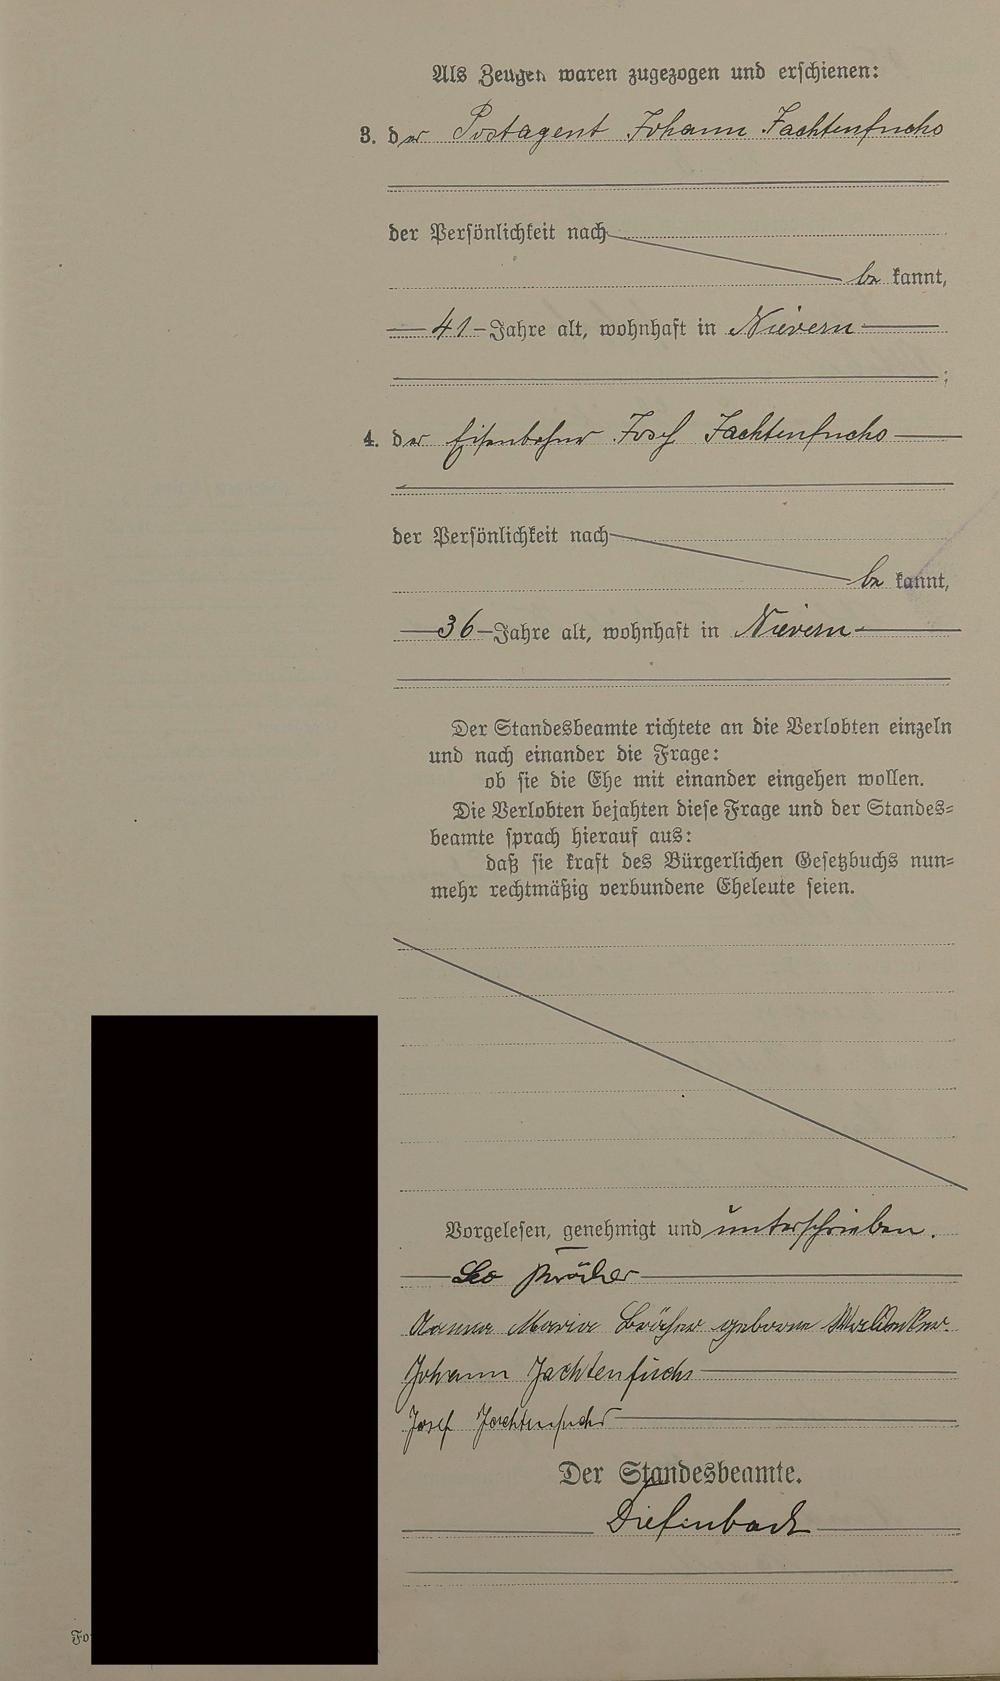 Als Zeugen waren zugezogen und erschienen:
3. der Postagent Johann Jachtenfuchs
der Persönlichkeit nach
be kannt,
41 Jahre alt, wohnhaft in Nievern
;
4. der Eisenbahner Josef Jachtenfuchs
der Persönlichkeit nach
be kannt,
36 Jahre alt, wohnhaft in Nievern
Der Standesbeamte richtete an die Verlobten einzeln
und nach einander die Frage:
ob sie die Ehe mit einander eingehen wollen.
Die Verlobten bejahten diese Frage und der Standes=
beamte sprach hierauf aus:
daß sie kraft des Bürgerlichen Gesetzbuchs nun=
mehr rechtmäßig verbundene Eheleute seien.
Vorgelesen, genehmigt und unterschrieben.
Leo
Anna Maria geborne
Johann Jachtenfuchs
Josef Jachtenfuchs
Der Standesbeamte.
Diefenbach